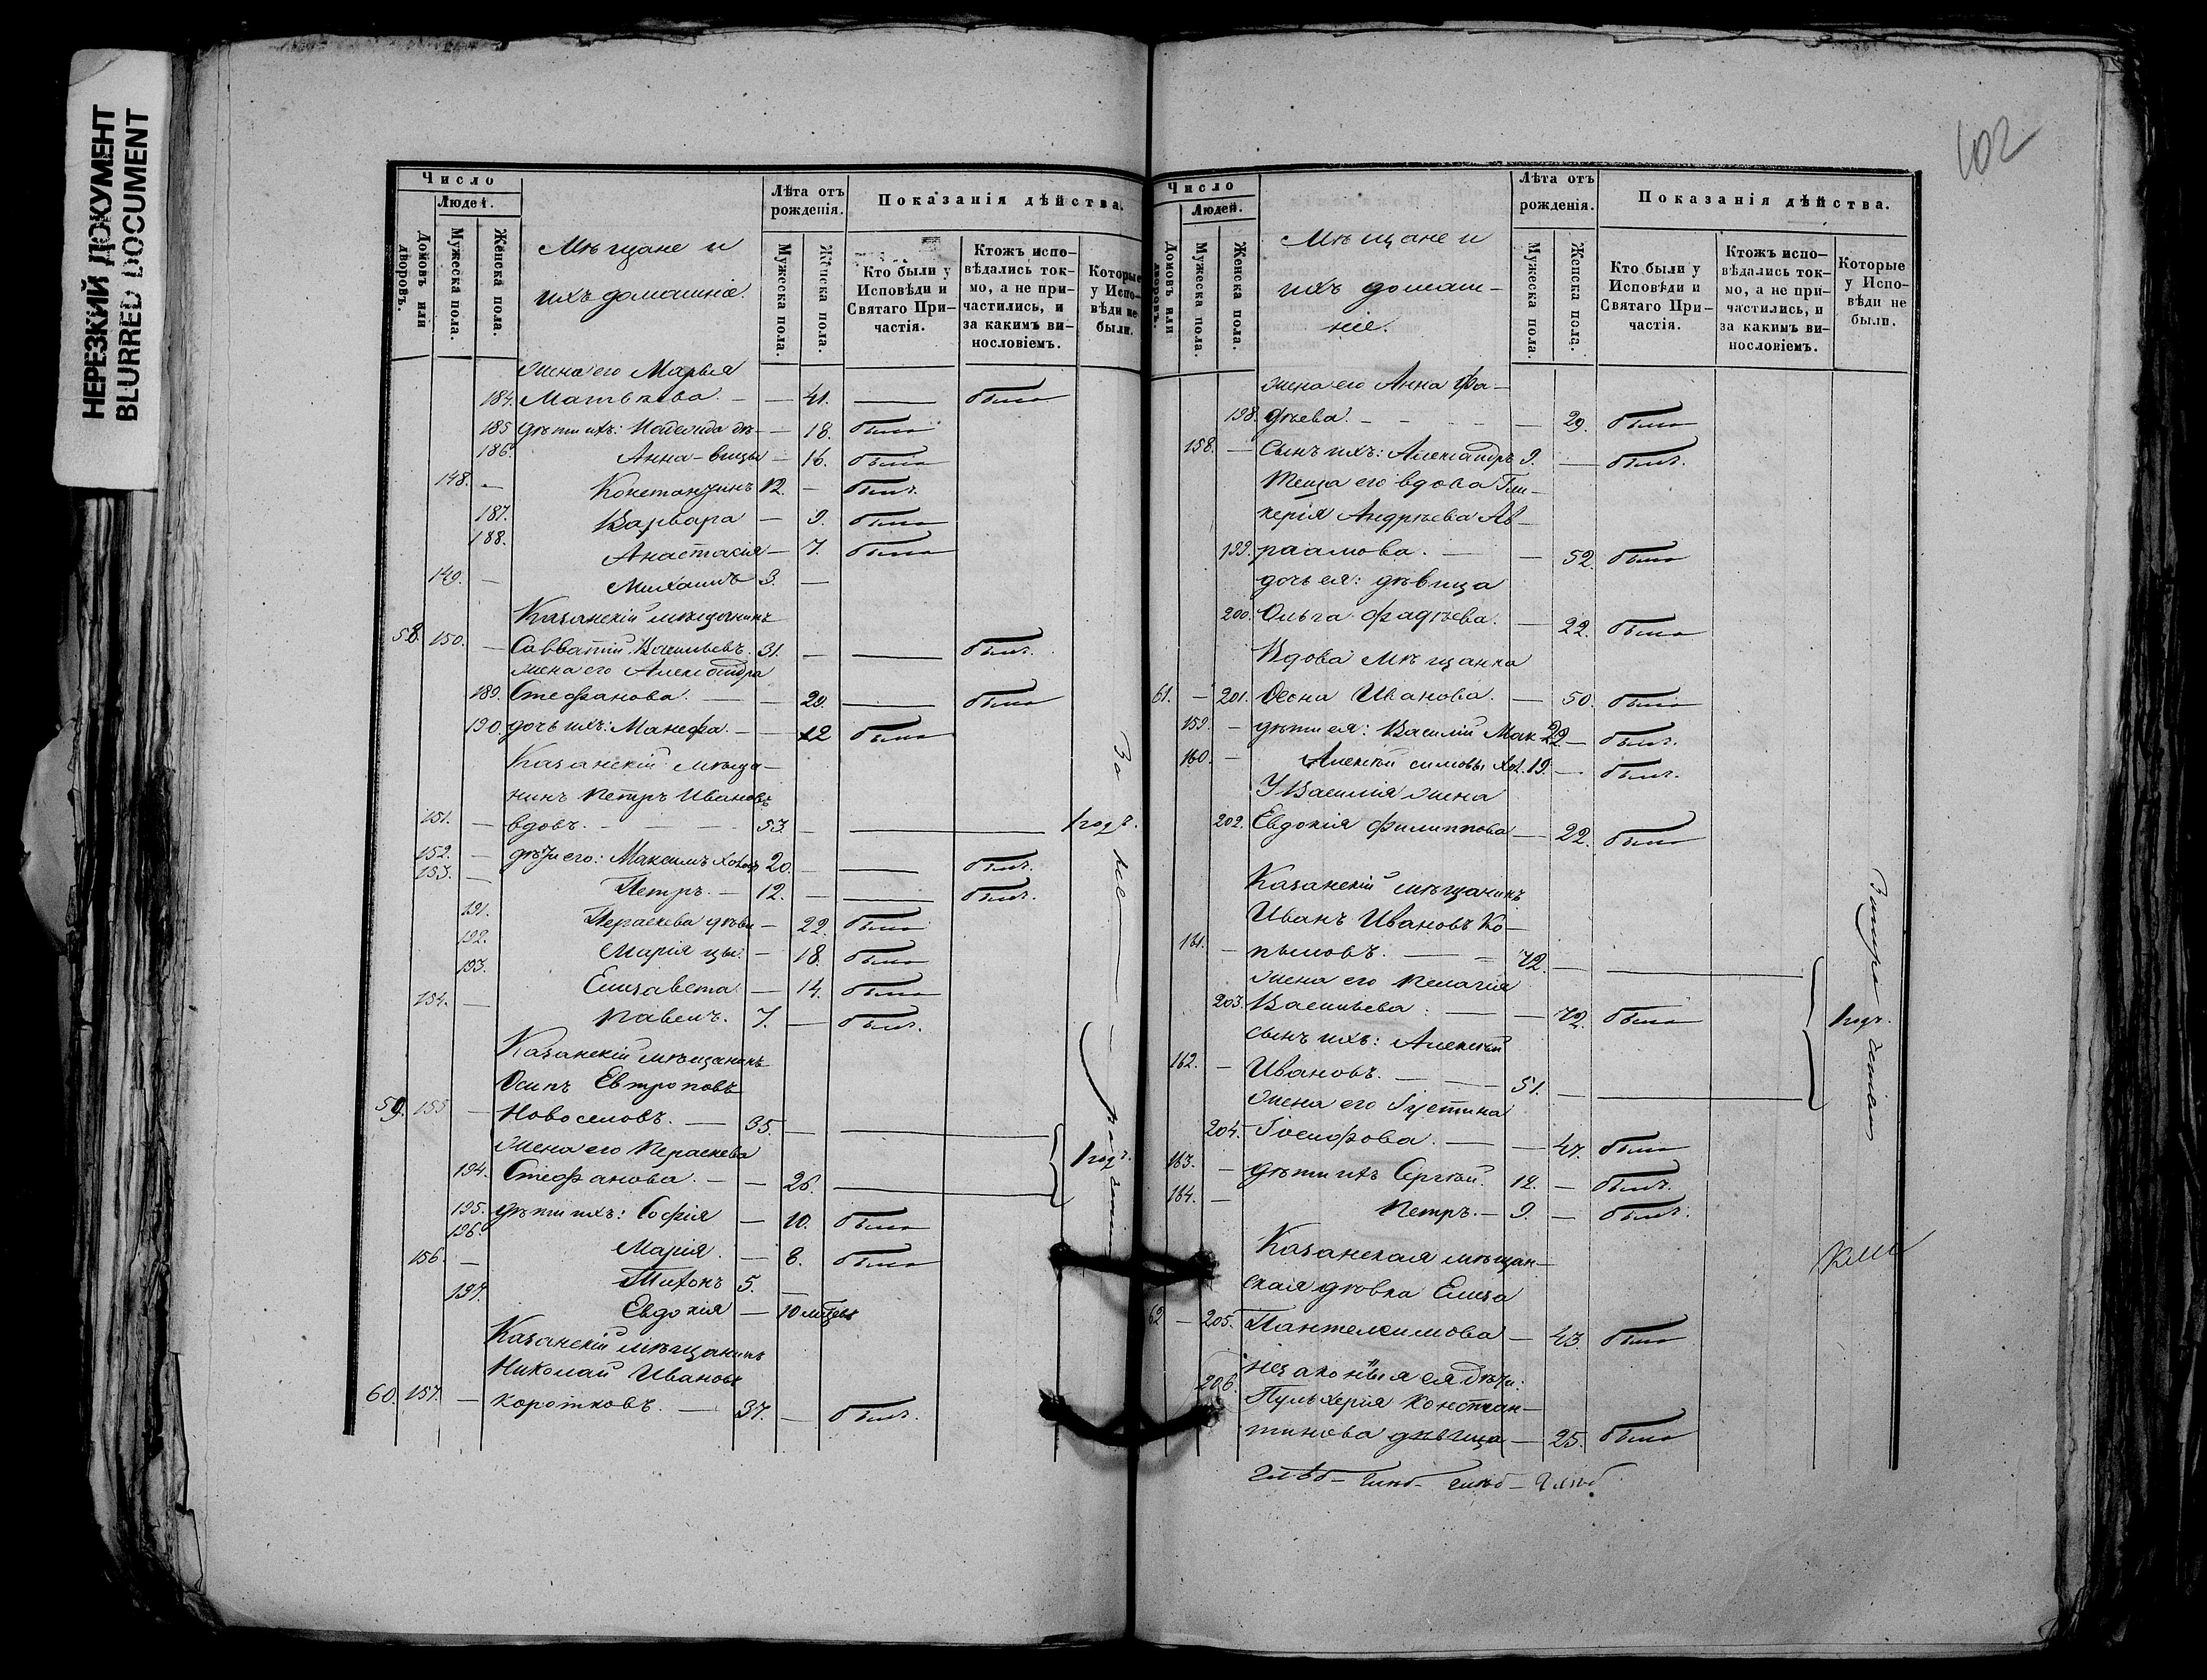 НЕРЕЗКИЙ ДОКУМЕНТ
BLURRED DOCUMENT
Число
Людей.
Домовъ или дворовъ.
Мужеска пола.
Женска пола.
Мѣщане и
ихъ домашніе.
Лѣта отъ рожденія.
Мужеска пола.
Женска пола.
Показанія дѣйства.
Кто были у Исповѣди и Святаго Причастія.
Ктожъ исповѣдались токмо, а не причастились, и за какимъ винословіемъ.
Которые у Исповѣди не были.
жена его Марья
184. Матвѣева. — — 41. — была
185 дѣти ихъ: Надежда дѣ- — 18. была
186. Анна - вицы — 16. была
148. — Константинъ 12. — былъ.
187. Варвара — 9. была
188. Анастасія — 7. была
149. — Михаилъ 3. —
Казанскій мѣщанинъ
58. 150. — Савватій Васильевъ. 31. — — былъ.
жена его Александра
189. Стефанова. — — 29. — была
190. дочь ихъ: Манефа. — — 12 была
Казанскій мѣща-
нинъ Петръ Ивановъ
151. — вдовъ. — 53. — — 1 годъ.
152. — дѣти его: Максимъ холос 20. — — былъ.
153. — Петръ. — 12. — — былъ.
191. Параскева дѣви — 22. была
192. Марія цы. — 18. была
193. Елизавета — 14. была
154. — Павелъ. 7. — былъ.
Казанскій мѣщанинъ
Осипъ Евтроповъ
59. 155 — Новоселовъ. — 35. — —
жена его Параскева 1 годъ.
194. Стефанова. — — 26. —
195. дѣти ихъ: Софія — 10. была
196. Марія. — 8. была
156. — Тихонъ 5. —
197. Евдокія — 10 мѣсяцевъ
Казанскій мѣщанинъ
Николай Ивановъ
60. 157. — Коротковъ. — 37. — былъ.
102
Число
Людей.
Домовъ или дворовъ.
Мужеска пола.
Женска пола.
Мѣщане и
ихъ домаш-
ніе.
Лѣта отъ рожденія.
Мужеска пола.
Женска пола.
Показанія дѣйства.
Кто были у Исповѣди и Святаго Причастія.
Ктожъ исповѣдались токмо, а не причастились, и за какимъ винословіемъ.
Которые у Исповѣди не были.
жена его Анна Фа-
198. дѣева. — — 29. была
158. — Сынъ ихъ: Александръ 9. — былъ.
Теща его вдова Гли-
керія Андрѣева Ав-
199. раамова. — — 52. была
дочь ея: дѣвица
200. Ольга Фадѣева. — 22. была
Вдова мѣщанка
61. — 201. Ѳеона Иванова. — 50. была
159. — дѣти ея: Василій Мак- 22 — былъ.
160. — Алексѣй симовы хол. 19. — былъ.
У Василія жена
202. Евдокія Филиппова — 22. была
Казанскій мѣщанинъ
Иванъ Ивановъ Ко-
161. — пыловъ. — — 72. — —
жена его Пелагія
203. Васильева. — — 72. была 1 годъ.
сынъ ихъ: Алексѣй
162. — Ивановъ. — — 51. — —
жена его Іустина
204. Іосифова. — — 47. была
163. — дѣти ихъ Сергѣй. 12. — былъ.
164. — Петръ. — 9. — былъ.
Казанская мѣщан-
ская дѣвка Елиза
62 — 205. Пантелеимова — 43. была
незаконныя ея дѣти:
206. Пульхерія Констан-
тинова дѣвица — 25. была